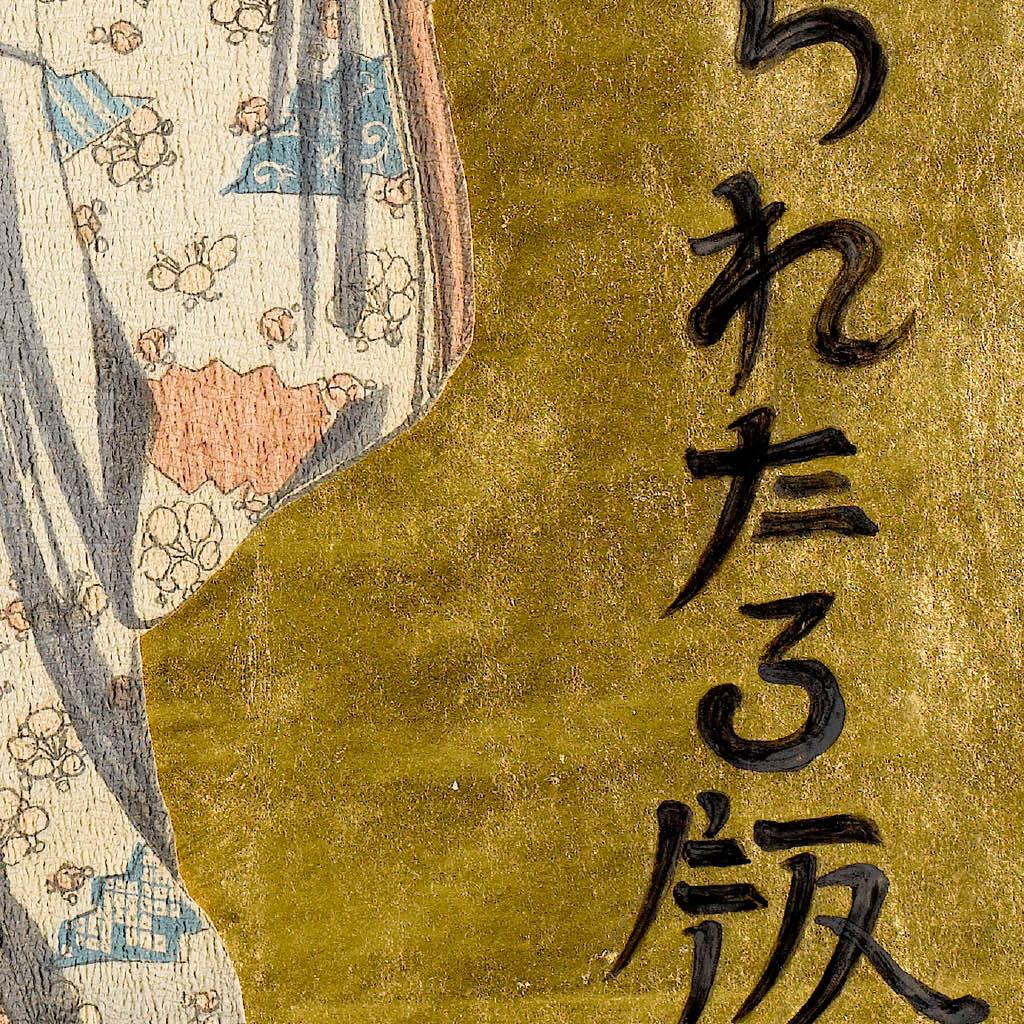 られたる版